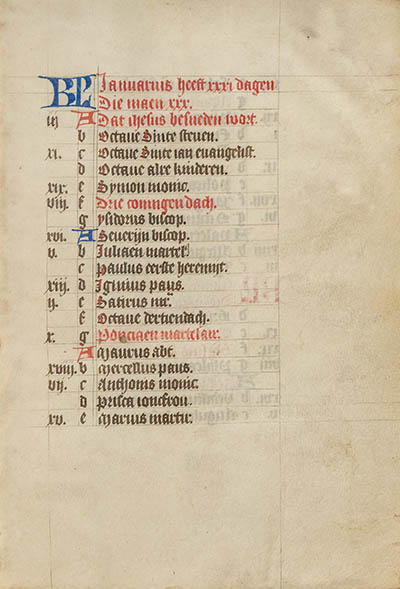 KL Ianuarius heeft xxxi dagen
Die maen xxx.
iij A Dat ihesus besneden wort.
b Octaue Sinte steuen.
xi. c Octaue Sinte ian euangelist.
d Octaue alre kinderen.
xix. e Symon monic.
viij. f Drie coningen dach.
g ysidorus biscop.
xvi. A Seuerijn biscop.
v. b Iuliaen martel
c paulus eerste heremijt.
xiij. d Iginius paus.
ij. e Satirus mr.
f Octaue dertiendach.
x. g Ponciaen martelaer.
A Maurus abt.
xviij. b Mercellus paus.
vij. c Anthonis monic.
d prisca ioncfrou.
xv. e Marius martir.